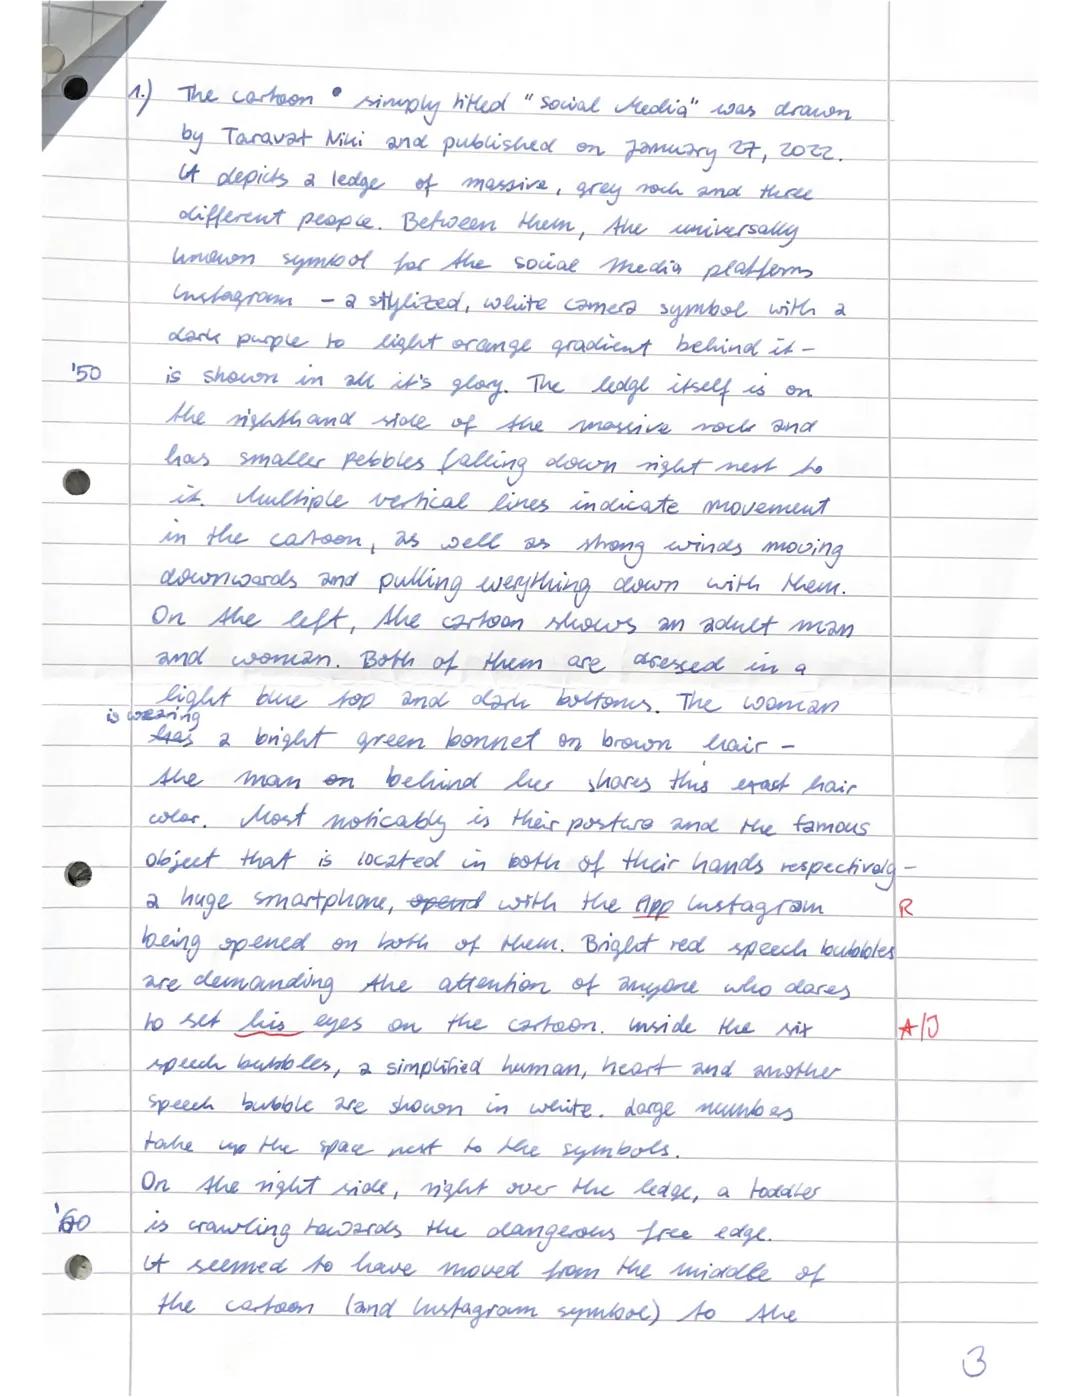 1.) The cartoon simply titled "Social Media" was drawn
by Taravat Niki and published on January 27, 2022.
It depicts a ledge of massive, grey rock and three
different people. Between them, the universally
known symbol for the social media platform
Instagram - a stylized, white camera symbol with a
dark purple to light orange gradient behind it -
'50 is shown in all it's glory. The ledge itself is on
the righthand side of the massive rock and
has smaller pebbles falling down right next to
it. Multiple vertical lines indicate movement
in the cartoon, as well as strong winds moving
downwards and pulling everything down with them.
On the left, the cartoon shows an adult man
and woman. Both of them are dressed in a
light blue top and dark bottoms. The woman
is wearing
has a bright green bonnet on brown hair -
the man on behind her shares this exact hair
color. Most noticably is their posture and the famous
object that is located in both of their hands respectively -
a huge smartphone, opend with the App Instagram R
being opened on both of them. Bright red speech bubbles
are demanding the attention of anyone who dares
to set his eyes on the cartoon. Inside the six A/J
speech bubbles, a simplified human, heart and another
speech bubble are shown in white. Large numbers
take up the space next to the symbols.
On the right side, right over the ledge, a toddler
'60 is crawling towards the dangerous free edge.
It seemed to have moved from the middle of
the cartoon (and Instagram symbol) to the
3